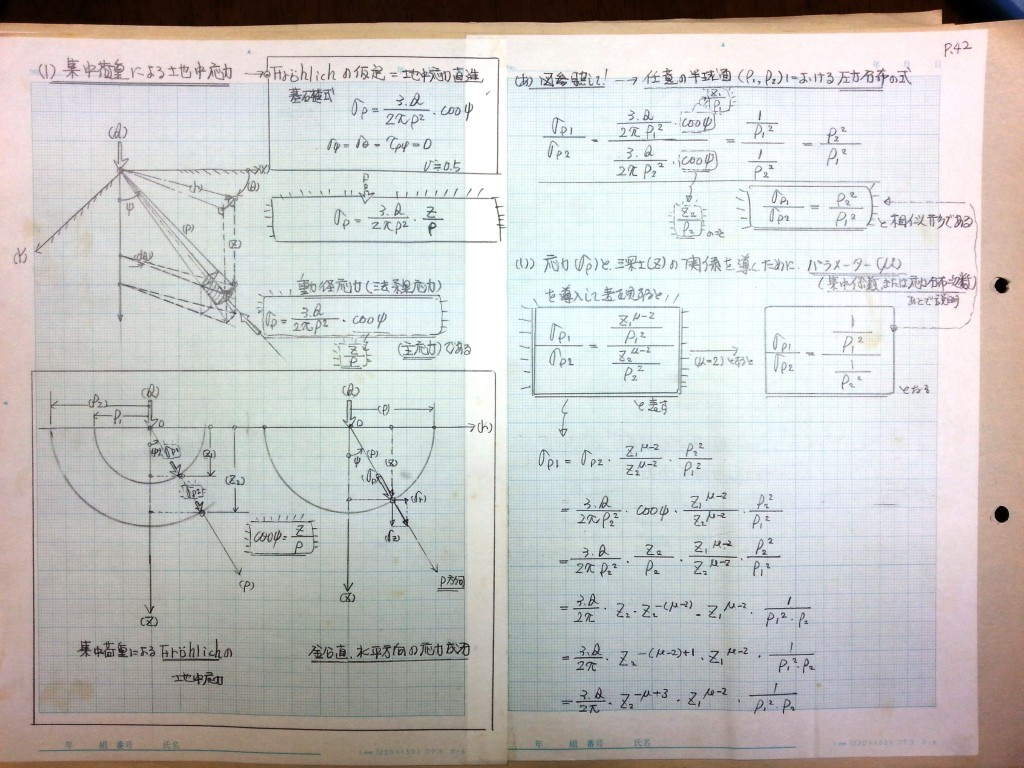 P.42
(1) 集中荷重による土地中応力 → Fröhlichの仮定=土地中応力直進
基石楕式
σρ = 3.Q / 2πρ² · cosψ
σψ = σθ = τρψ = 0
ν≒0.5
σρ = 3.Q / 2πρ² · Z/ρ
(Q)
ψ
(ρ)
(Z)
動径応力(主応力)
σρ = 3.Q / 2πρ² · cosψ
Z/ρ
(主応力)である
(Q)
(ρ2)
ρ1
0
(Z1)
(Z2)
σρ1
σρ2
(ρ)
(Z)
cosψ = Z/ρ
(Q)
(ρ)
0
(h)
ψ
(ρ)
(Z)
(σρ)
(σz)
(Z)
ρ方向
集中荷重によるFröhlichの
土地中応力
鉛直、水平方向の応力成分
(あ) 図参照して! → 任意の半球面(ρ1, ρ2)における圧力分布の式
σρ1 / σρ2 = (3.Q / 2πρ1² · cosψ) / (3.Q / 2πρ2² · cosψ) = (1/ρ1²) / (1/ρ2²) = ρ2² / ρ1²
Z1/ρ1
Z2/ρ2 のこと
σρ1 / σρ2 = ρ2² / ρ1² と相似形である
(い) 応力(σρ)と深さ(Z)の関係を導くために、パラメーター(μ)
(集中係数または応力分布係数)
あとで説明
を導入して書き見ると
σρ1 / σρ2 = (Z1^μ-2 / ρ1²) / (Z2^μ-2 / ρ2²)
と表す
(μ=2)とすると
σρ1 / σρ2 = (1/ρ1²) / (1/ρ2²)
となる
σρ1 = σρ2 · Z1^μ-2 / Z2^μ-2 · ρ2² / ρ1²
= 3.Q / 2πρ2² · cosψ · Z1^μ-2 / Z2^μ-2 · ρ2² / ρ1²
= 3.Q / 2πρ2² · Z2 / ρ2 · Z1^μ-2 / Z2^μ-2 · ρ2² / ρ1²
= 3.Q / 2π · Z2 · Z2^-(μ-2) · Z1^μ-2 · 1 / ρ1²·ρ2
= 3.Q / 2π · Z2^-(μ-2)+1 · Z1^μ-2 · 1 / ρ1²·ρ2
= 3.Q / 2π · Z2^-μ+3 · Z1^μ-2 · 1 / ρ1²·ρ2
年 組 番号 氏名
年 組 番号 氏名